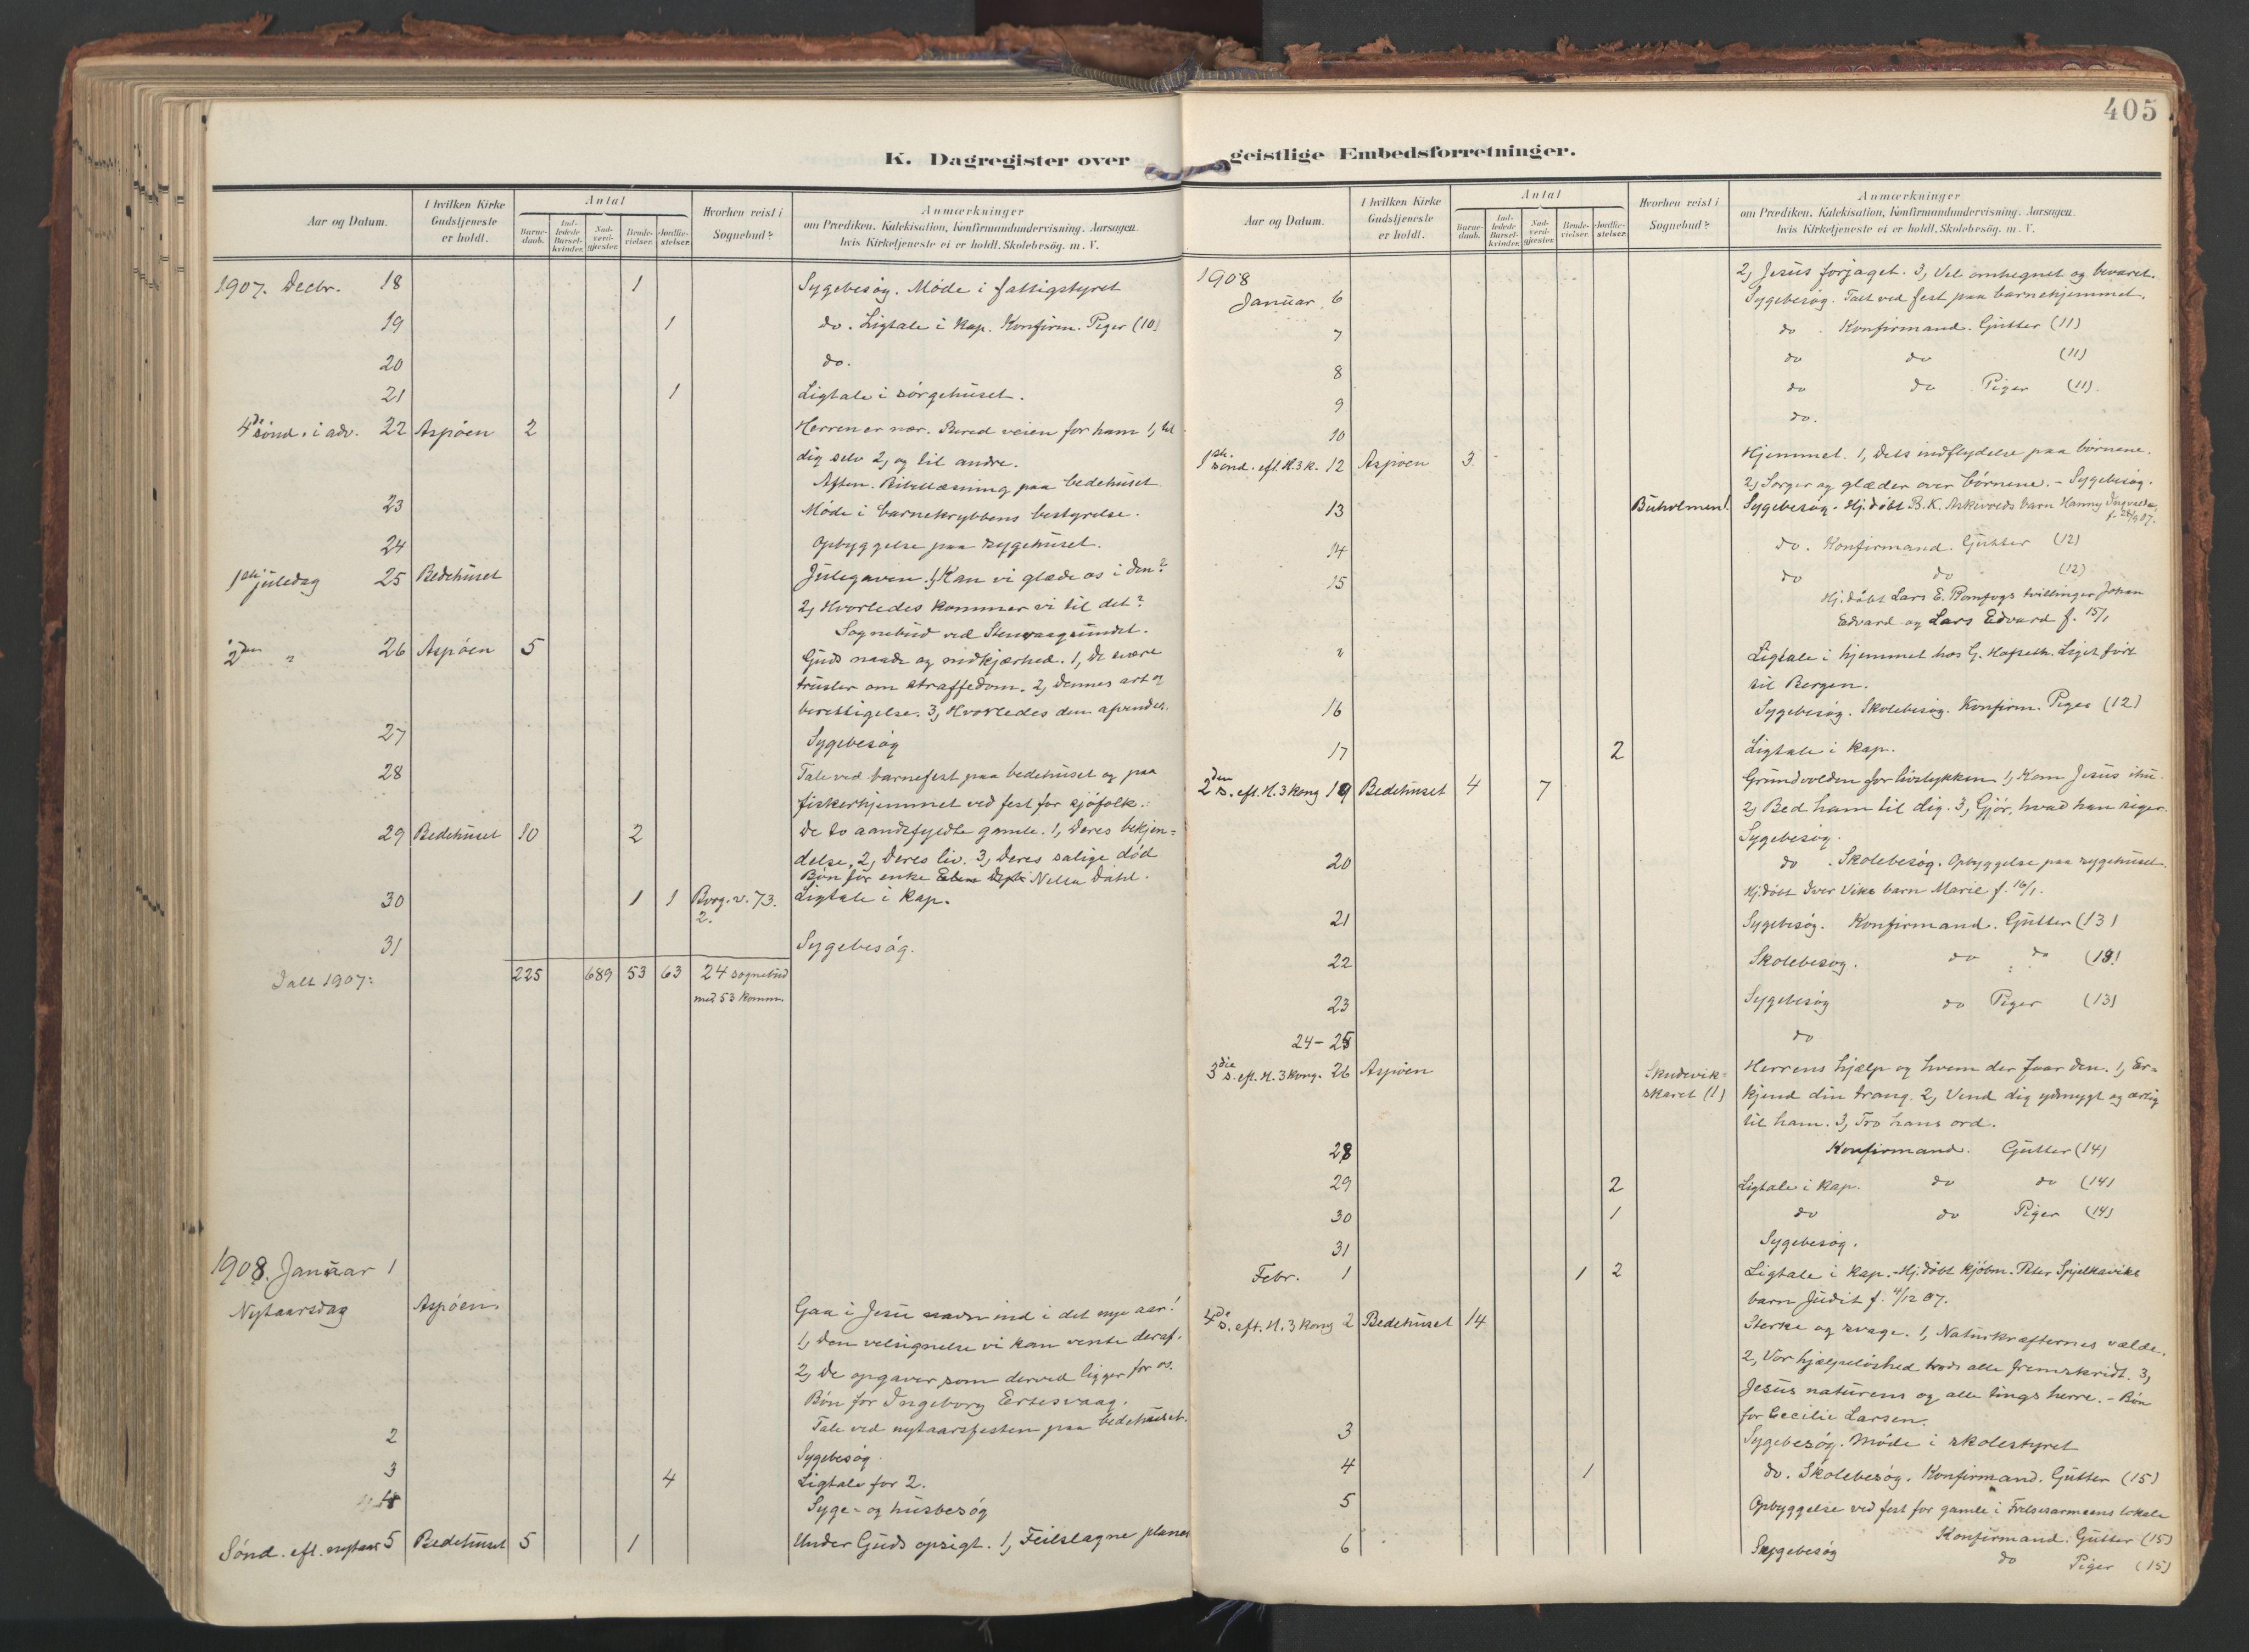 405
K. Dagregister over
Aar og Datum.
I hvilken Kirke Gudstjeneste er holdt.
Antal
Barne-daab.
Ind-ledede Barsel-kvinder.
Nad-verd-gjester.
Brude-vielser.
Jordfæ-stelser.
Hvorhen reist i Sognebud?
Anmærkninger
om Prædiken, Katekisation, Konfirmandundervisning. Aarsagen, hvis Kirketjeneste ei er holdt. Skolebesög. m. V.
1907. Decbr. 18 1 Sygebesøg. Møde i fattigstyret
19 1 do. Ligtale i Kap. Konfirm. Piger (10)
20 do.
21 1 Ligtale i sørgehuset.
4de sønd. i adv. 22 Aspøen 2 Herren er nær. Bered veien for ham 1, til
dig selv 2, og til andre.
Aften. Bibellæsning paa bedehuset
23 Møde i barnekrybbens bestyrelse.
24 Opbyggelse paa sygehuset.
1ste juledag 25 Bedehuset Julegaven. 1, Kan vi glæde os i den?
2, Hvorledes kommer vi til det?
Sognebud ved Stenvaagsundet.
2den " 26 Aspøen 5 Guds naade og nidkjærhed. 1, De svære
trusler om straffedom. 2, Dennes art og
berettigelse. 3, Hvorledes den afvendes.
27 Sygebesøg
28 Tale ved barnefest paa bedehuset og paa
fiskerhjemmet ved fest for sjøfolk.
29 Bedehuset 10 2 De to aandsfyldte gamle. 1, Deres bekjen=
delse, 2, Deres liv. 3, Deres salige død
Bøn for enke Nella Dahl.
30 1 1 Borg. v. 73. Ligtale i Kap.
2.
31 Sygebesøg.
Ialt 1907: 225 689 53 63 24 sognebud
med 53 komm.
1908. Januar 1
Nytaarsdag Aspøen. Gaa i Jesu navn ind i det nye aar!
1, Den velsignelse vi kan vente deraf.
2, De opgaver som derved ligger for os.
Bøn for Ingeborg Ertesvaag.
Tale ved nytaarsfesten paa bedehuset.
2 Sygebesøg
3 4 Ligtale for 2.
4 Syge- og husbesøg
Sønd. eft. nytaar 5 Bedehuset 5 1 Under Guds opsigt. 1, Feilslagne planer
geistlige Embedsforretninger.
Aar og Datum.
I hvilken Kirke Gudstjeneste er holdt.
Antal
Barne-daab.
Ind-ledede Barsel-kvinder.
Nad-verd-gjester.
Brude-vielser.
Jordfæ-stelser.
Hvorhen reist i Sognebud?
Anmærkninger
om Prædiken, Katekisation, Konfirmandundervisning. Aarsagen, hvis Kirketjeneste ei er holdt. Skolebesög. m. V.
1908 2, Jesus forjaget. 3, Vel omhegnet og bevaret.
Januar 6 Sygebesøg. Talt ved fest paa barnehjemmet.
7 do. Konfirmand. Gutter (11)
8 do do (11)
9 do do Piger (11)
10 do.
1ste sønd. eft. H. 3 k. 12 Aspøen 3 Hjemmet. 1, Dets indflydelse paa børnene.
2, Sorger og glæder over børnene. - Sygebesøg.
13 Buholmen 1. Sygebesøg. Hj. døbt B. K. Askevolds barn Hanny Ingvalda
14 do. Konfirmand. Gutter (12)
15 do do (12)
Hj. døbt Lars E. Romfogs tvillinger Johan
Edvard og Lars Edvard f. 15/1
" Ligtale i hjemmet hos G. Hofseth. Liget ført
til Bergen.
16 Sygebesøg. Skolebesøg. Konfirm. Piger (12)
17 2 Ligtale i Kap.
2den s. eft. H. 3 kong 19 Bedehuset 4 7 Grundvolden for livslykken 1, Kom Jesus ihu.
2, Bed ham til dig. 3, Gjør, hvad han siger.
Sygebesøg.
20 do. Skolebesøg. Opbyggelse paa sygehuset.
Hj. døbt Iver Viks barn Marie f. 16/1.
21 Sygebesøg. Konfirmand. Gutter (13)
22 Skolebesøg. do do (13)
23 Sygebesøg do Piger (13)
24-25 do
3die s. eft. H. 3 kong. 26 Aspøen Skudevik= Herrens hjælp og hvem der faar den. 1, Er=
skaret (1) kjend din trang. 2, Vend dig ydmygt og ærlig
til ham. 3, Tro hans ord.
28 Konfirmand. Gutter (14)
29 2 Ligtale i Kap. do do (14)
30 1 do do Piger (14)
31 Sygebesøg.
Febr. 1 1 2 Ligtale i Kap. - Hj. døbt kjøbm. Peter Spjelkaviks
barn Judit f. 4/12 07.
4de s. eft. H. 3 kong 2 Bedehuset 14 Sterke og svage. 1, Naturkræfternes vælde.
2, Vor hjælpeløshed trods alle fremskridt. 3,
Jesus naturens og alle tings herre. - Bøn
for Cecilie Larsen.
3 Sygebesøg. Møde i skolestyret
4 1 do. Skolebesøg. Konfirmand. Gutter (15)
5 Opbyggelse ved fest for gamle i Frelsesarmeens lokale
Konfirmand. Gutter (15)
6 Sygebesøg do Piger (15)